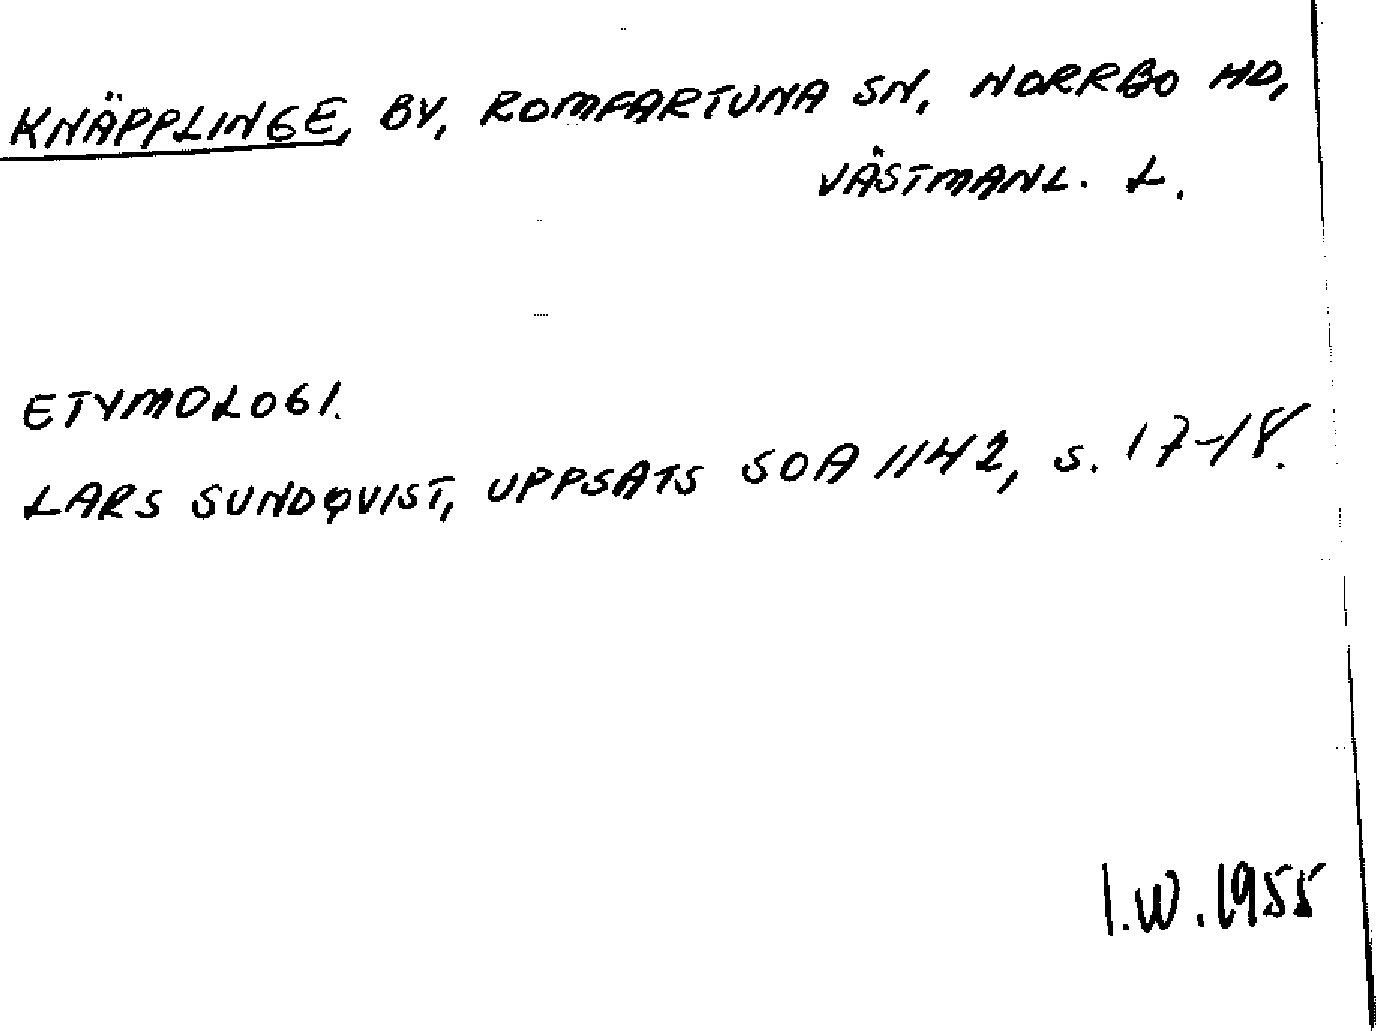 KNÄPPLINGE, BY, ROMFARTUNA SN, NORRBO HD,
VÄSTMANL. L.
ETYMOLOGI.
LARS SUNDQVIST, UPPSATS SOA 1142, s. 17-18.
I.W.1955